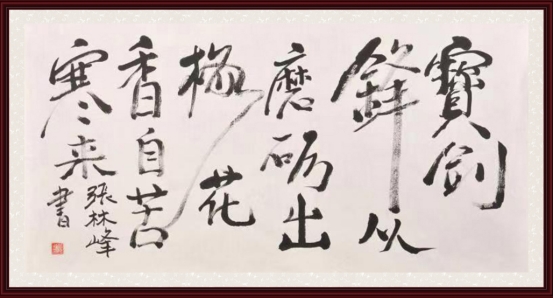 寶剑
鋒从
磨砺出
梅花
香自苦
寒来
張林峰
書